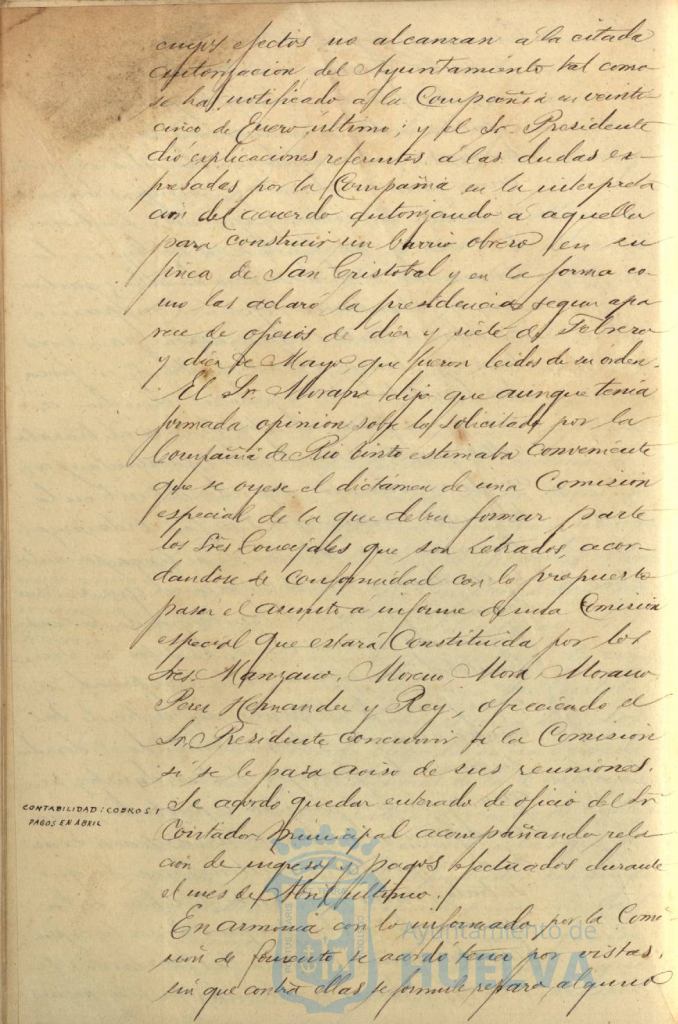 cuyos efectos no alcanzan á la citada
autorizacion del Ayuntamiento tal como
se ha notificado á la Compañia en veinte
cinco de Enero último; y el Sr. Presidente
dió explicaciones referentes á las dudas ex-
presadas por la Compañia en la interpreta
cion del acuerdo autorizando á aquella
para construir un barrio obrero en su
finca de San Cristobal y en la forma co-
mo las aclaró la presidencia segun apa
rece de oficios de diez y siete de Febrero
y diez de Mayo que fueron leidos de su órden.
El Sr. Morano dijo que aunque tenia
formada opinion sobre lo solicitado por la
Compañia de Rio Tinto estimaba conveniente
que se oyese el dictámen de una Comision
especial de la que deben formar parte
los Sres Concejales que son Letrados, acor-
dandose de conformidad con lo propuesto
pasar el asunto á informe de una Comision
especial que estará Constituida por los
Sres. Manzano, Moreno, Mora, Morano,
Perez Hernandez y Rey, ofreciendo el
Sr. Presidente concurrir á la Comision
si se le pasa aviso de sus reuniones.
CONTABILIDAD: COBROS Y
PAGOS EN ABRIL
Se acordó quedar enterado de oficio del Sr
Contador principal acompañando rela
cion de ingresos y pagos efectuados durante
el mes de Abril último.
En armonia con lo informado por la Comi-
sion de fomento se acordó tener por vistas,
sin que contra ellas se formule reparo alguno
Ayuntamiento de
HUELVA